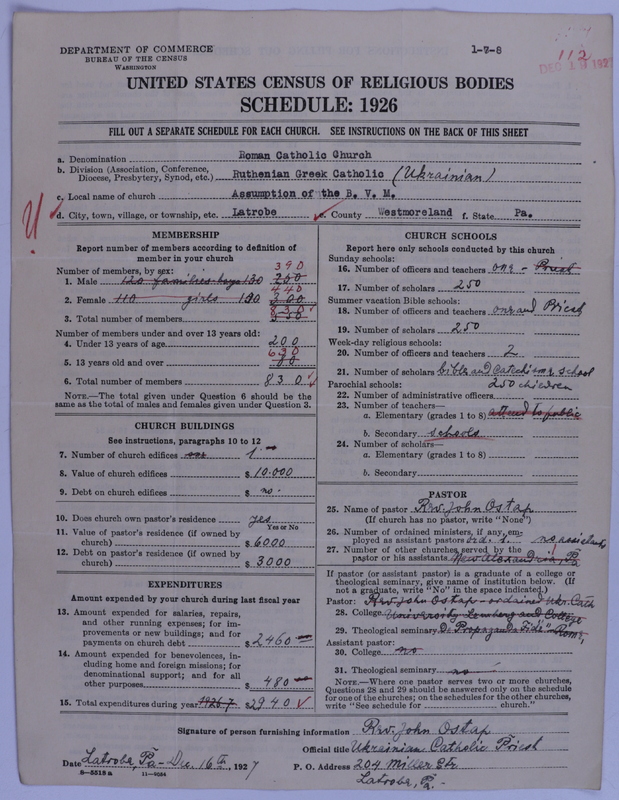 DEPARTMENT OF COMMERCE
BUREAU OF THE CENSUS
WASHINGTON
1-7-8
112
UNITED STATES CENSUS OF RELIGIOUS BODIES
SCHEDULE: 1926
FILL OUT A SEPARATE SCHEDULE FOR EACH CHURCH. SEE INSTRUCTIONS ON THE BACK OF THIS SHEET
a. Denomination Roman Catholic Church
b. Division (Association, Conference, Diocese, Presbytery, Synod, etc.) Ruthenian Greek Catholic (Ukrainian)
c. Local name of church Assumption of the B. V. M.
d. City, town, village, or township, etc. Latrobe e. County Westmoreland f. State Pa.
MEMBERSHIP
Report number of members according to definition of
member in your church
Number of members, by sex:
390
1. Male 120 families boys 130 200
440
2. Female 110 girls 120 200
830
3. Total number of members
Number of members under and over 13 years old:
4. Under 13 years of age 200
630
5. 13 years old and over
6. Total number of members 830
NOTE.—The total given under Question 6 should be the
same as the total of males and females given under Question 3.
CHURCH BUILDINGS
See instructions, paragraphs 10 to 12
7. Number of church edifices one 1
8. Value of church edifices $10.000
9. Debt on church edifices $ no.
10. Does church own pastor's residence yes
Yes or No
11. Value of pastor's residence (if owned by
church) $6000
12. Debt on pastor's residence (if owned by
church) $3000
EXPENDITURES
Amount expended by church during last fiscal year
13. Amount expended for salaries, repairs,
and other running expenses; for im-
provements or new buildings; and for
payments on church debt $2460
14. Amount expended for benevolences, in-
cluding home and foreign missions; for
denominational support; and for all
other purposes $480
15. Total expenditures during year 1926-7 $2940
CHURCH SCHOOLS
Report here only schools conducted by this church
Sunday schools:
16. Number of officers and teachers one - Priest
17. Number of scholars 250
Summer vacation Bible schools:
18. Number of officers and teachers one and Priest
19. Number of scholars 250
Week-day religious schools:
20. Number of officers and teachers 2
21. Number of scholars bible and Catechism school
Parochial schools: 250 children
22. Number of administrative officers
23. Number of teachers—
a. Elementary (grades 1 to 8) attend to public
b. Secondary schools
24. Number of scholars—
a. Elementary (grades 1 to 8)
b. Secondary
PASTOR
25. Name of pastor Rev. John Ostap
(If church has no pastor, write "None")
26. Number of ordained ministers, if any, em-
ployed as assistant pastors no assistants
27. Number of other churches served by the
pastor or his assistants New Alexandria, Pa
If pastor (or assistant pastor) is a graduate of a college or
theological seminary, give name of institution below. (If
not a graduate, write "No" in the space indicated.)
Pastor: Rev. John Ostap - ordained Ukr. Cath
28. College University Lemberg and College
29. Theological seminary D. Propaganda Fide" Rome
Assistant pastor
30. College no
31. Theological seminary no
NOTE.—Where one pastor serves two or more churches,
Questions 28 and 29 should be answered only on the schedule
for one of the churches; on the schedules for the other churches,
write "See schedule for church."
Signature of person furnishing information Rev. John Ostap
Official title Ukrainian Catholic Priest
Date Latrobe, Pa - Dec. 16th, 1927 P. O. Address 204 Miller Str
8-5518a 11-9584 Latrobe, Pa.